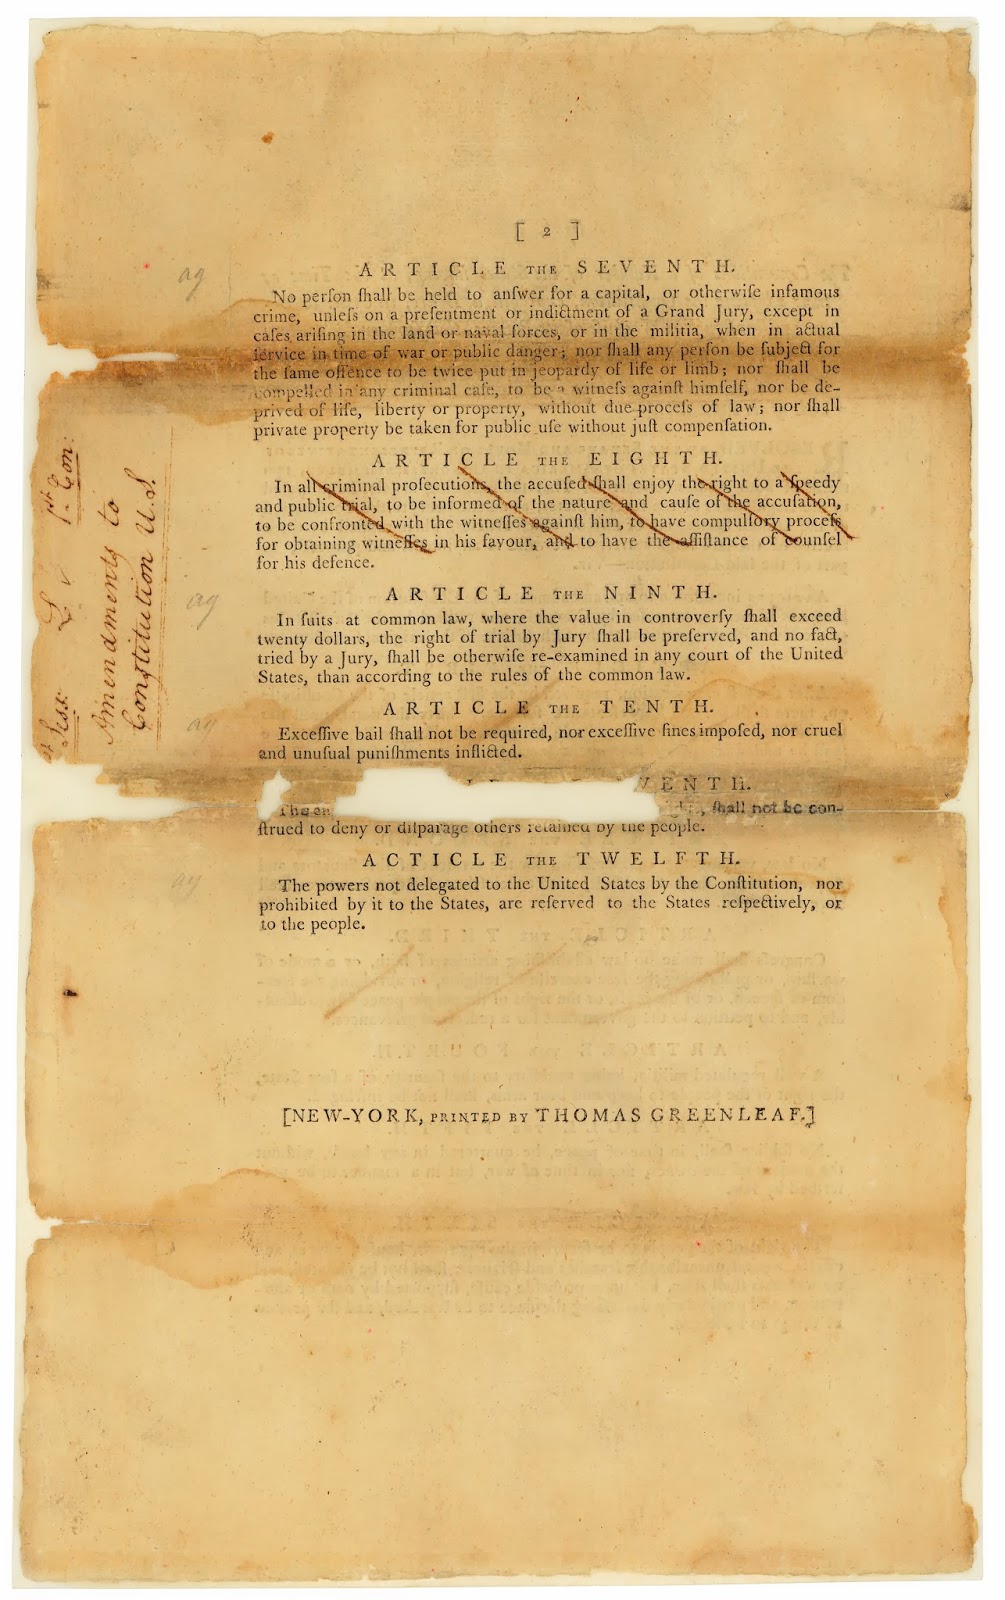 [ 2 ]
ARTICLE THE SEVENTH.
No perſon ſhall be held to anſwer for a capital, or otherwiſe infamous
crime, unleſs on a preſentment or indictment of a Grand Jury, except in
caſes ariſing in the land or naval forces, or in the militia, when in actual
ſervice in time of war or public danger; nor ſhall any perſon be ſubject for
the ſame offence to be twice put in jeopardy of life or limb; nor ſhall be
compelled in any criminal caſe, to be a witneſs againſt himſelf, nor be de-
prived of life, liberty or property, without due proceſs of law; nor ſhall
private property be taken for public uſe without juſt compenſation.
ARTICLE THE EIGHTH.
In all criminal proſecutions, the accuſed ſhall enjoy the right to a ſpeedy
and public trial, to be informed of the nature and cauſe of the accuſation,
to be confronted with the witneſſes againſt him, to have compulſory proceſs
for obtaining witneſſes in his favour, and to have the aſſiſtance of counſel
for his defence.
ARTICLE THE NINTH.
In ſuits at common law, where the value in controverſy ſhall exceed
twenty dollars, the right of trial by Jury ſhall be preſerved, and no fact,
tried by a Jury, ſhall be otherwiſe re-examined in any court of the United
States, than according to the rules of the common law.
ARTICLE THE TENTH.
Exceſſive bail ſhall not be required, nor exceſſive fines impoſed, nor cruel
and unuſual puniſhments inflicted.
VENTH.
The en , ſhall not be con-
ſtrued to deny or diſparage others retained by the people.
ACTICLE THE TWELFTH.
The powers not delegated to the United States by the Conſtitution, nor
prohibited by it to the States, are reſerved to the States reſpectively, or
to the people.
[NEW-YORK, PRINTED BY THOMAS GREENLEAF.]
ag
ag
ag
ag
Sess: 1st. Con:
Amendments to
Constitution U.S.